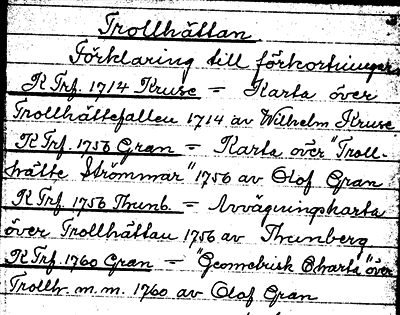 Trollhättan.
Förklaring till förkortningar
K Trf. 1714 Kruse = Karta över
Trollhättefallen 1714 av Wilhelm Kruse
K Trf. 1756 Gran = Karta över "Troll-
hätte Strömmar" 1756 av Olof Gran
K Trf. 1756 Thunb. = Avvägningskarta
över Trollhättan 1756 av Thunberg
K Trf. 1760 Gran = "Geometrisk Charta" över
Trollh. m.m. 1760 av Olof Gran